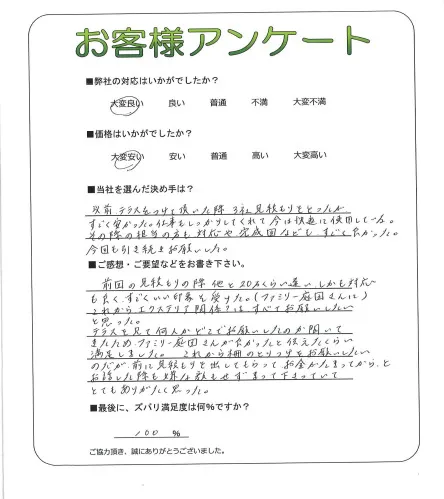 お客様アンケート
■弊社の対応はいかがでしたか?
大変良い 良い 普通 不満 大変不満
■価格はいかがでしたか?
大変安い 安い 普通 高い 大変高い
■当社を選んだ決め手は?
以前テラスをつけて頂いた際3社見積もりをとったが
すごく安かった。仕事もしっかりしてくれて今は快適に使用している。
その際の担当の方も対応や完成図などもすごく良かった。
今回も引き続きお願いした。
■ご感想・ご要望などをお書き下さい。
前回の見積もりの際他と20万くらい違い、しかも対応
も良く、すごくいい印象を受けた。(ファミリー庭園さんに)
これからエクステリア関係はすべてお願いしたい
と思った。
テラスを見て何人かどこでお願いしたのか聞いて
きたため、ファミリー庭園さんが良かったと伝えたくらい
満足しました。これから柵のとりつけをお願いしたい
のだが、前に見積もりを出してもらってお金がたまってから、と
お話した際も嫌な顔もせずまって下さっていて
とてもありがたく思った。
■最後に、ズバリ満足度は何%ですか?
100 %
ご協力頂き、誠にありがとうございました。